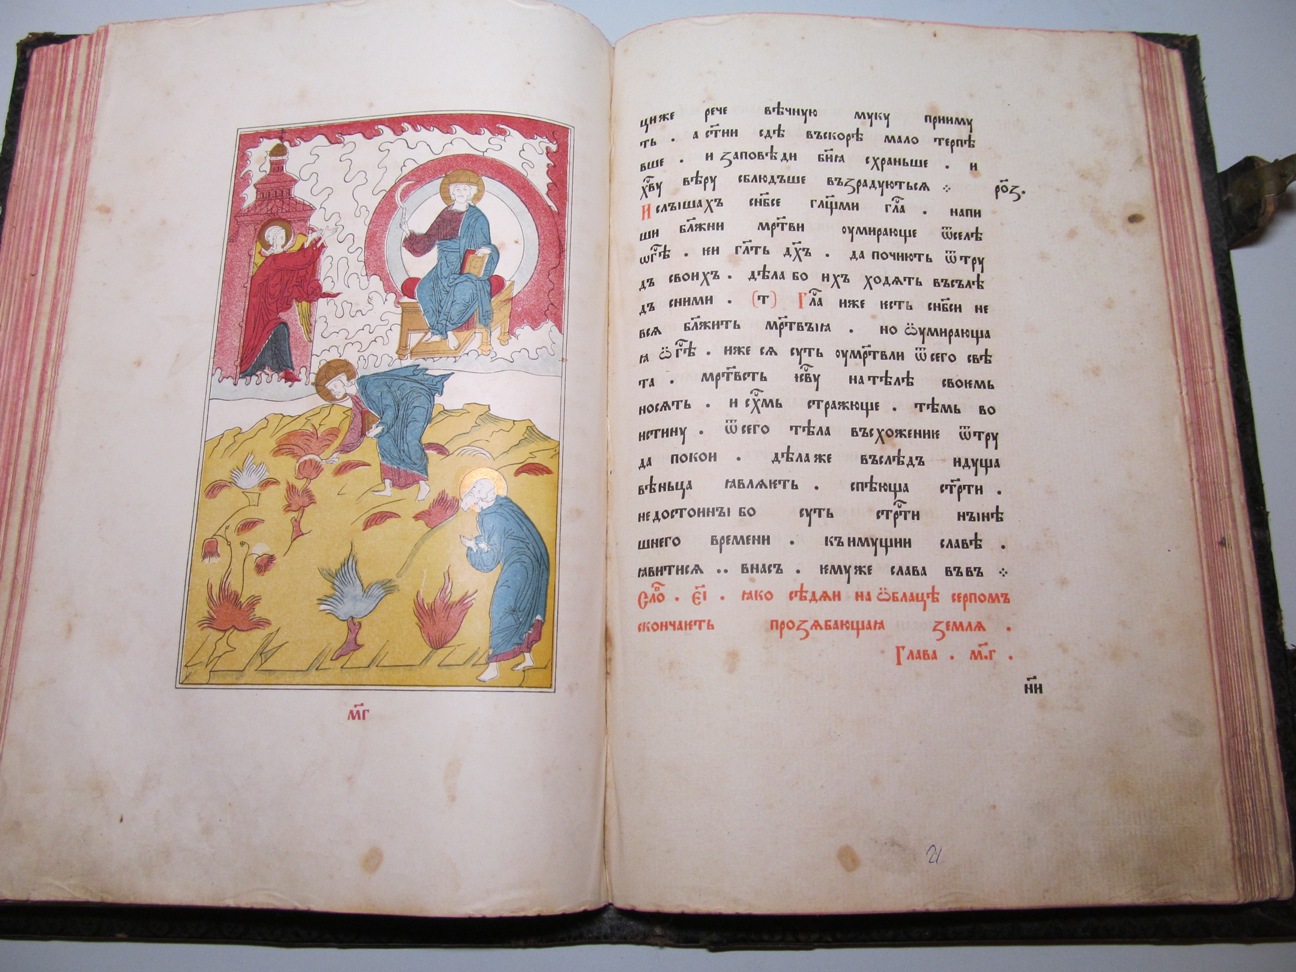 м҃г
циже рече вѣчную муку прииму
ть . а ст҃ии сдѣ въскорѣ мало терпѣ
вше . и заповѣди бж҃иꙗ схраньше . и
хв҃у вѣру сблюдъше възрадуються ⁘
И слышахъ сн҃бсе гл҃щми гл҃а . напи
ши бл҃жни мр҃тви оумирающе ѿселѣ
ѡг҃ѣ . ѥи гл҃ть дх҃ъ . да почиють ѿтру
дъ своихъ . дѣла бо ихъ ходѧть въсълѣ
дъ сними . (т) Гл҃а иже ѥсть сн҃бси не
всѧ бл҃жить мр҃твъꙗ . но ѡумирающа
ꙗ ѡг҃ѣ . иже сѧ суть оумр҃твли ѿсего свѣ
та . мр҃твсть іс҃ву натѣлѣ своѥмь
носѧть . и сх҃мь стражюще . тѣмь во
истину . ѿсего тѣла въсхожениѥ ѿтру
да покои . дѣлаже въслѣдъ идуща
вѣньца ꙗвлѧѥть . спѣюща ст҃рти .
недостоины бо суть ст҃рти нынѣ
шнего времени . къимущии славѣ .
ꙗвитисѧ .. внасъ . ѥмуже слава въвъ ⁘
Сло҃ . е҃і . ꙗко сѣдѧи на ѡблацѣ серпомъ
скончаѥть прозѧбающаꙗ землѧ .
Глава . м҃г .
н҃и
21